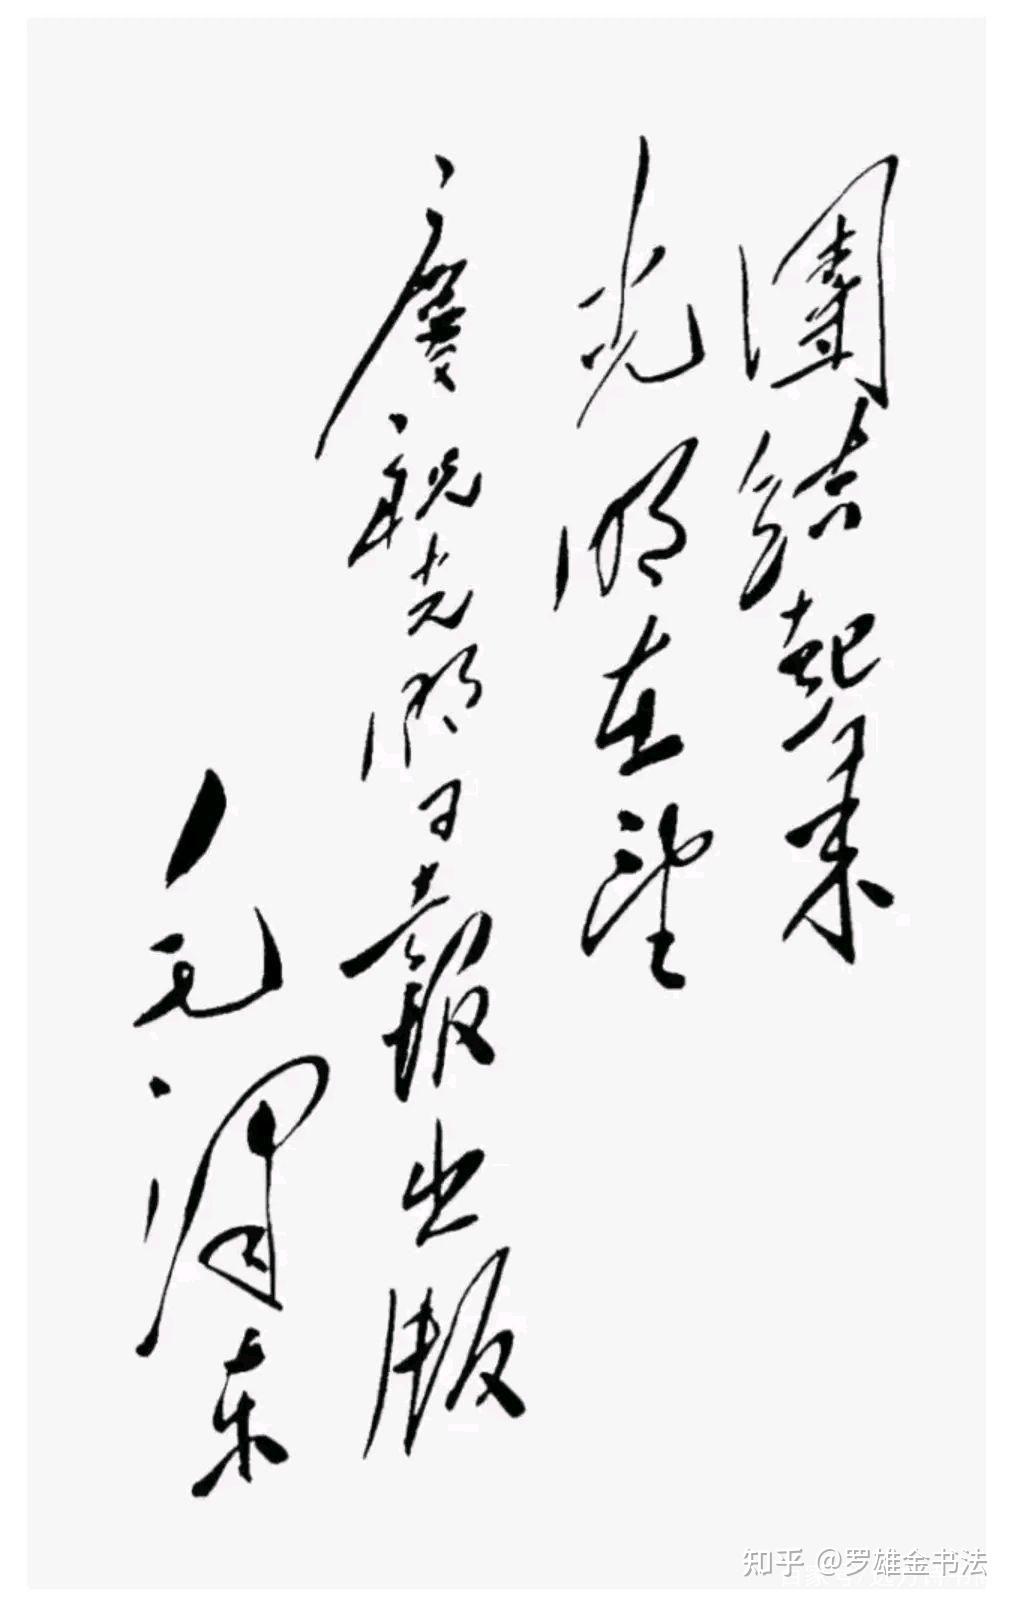 團結起來
光明在望
慶祝光明日報出版
毛澤東
知乎 @罗雄金书法